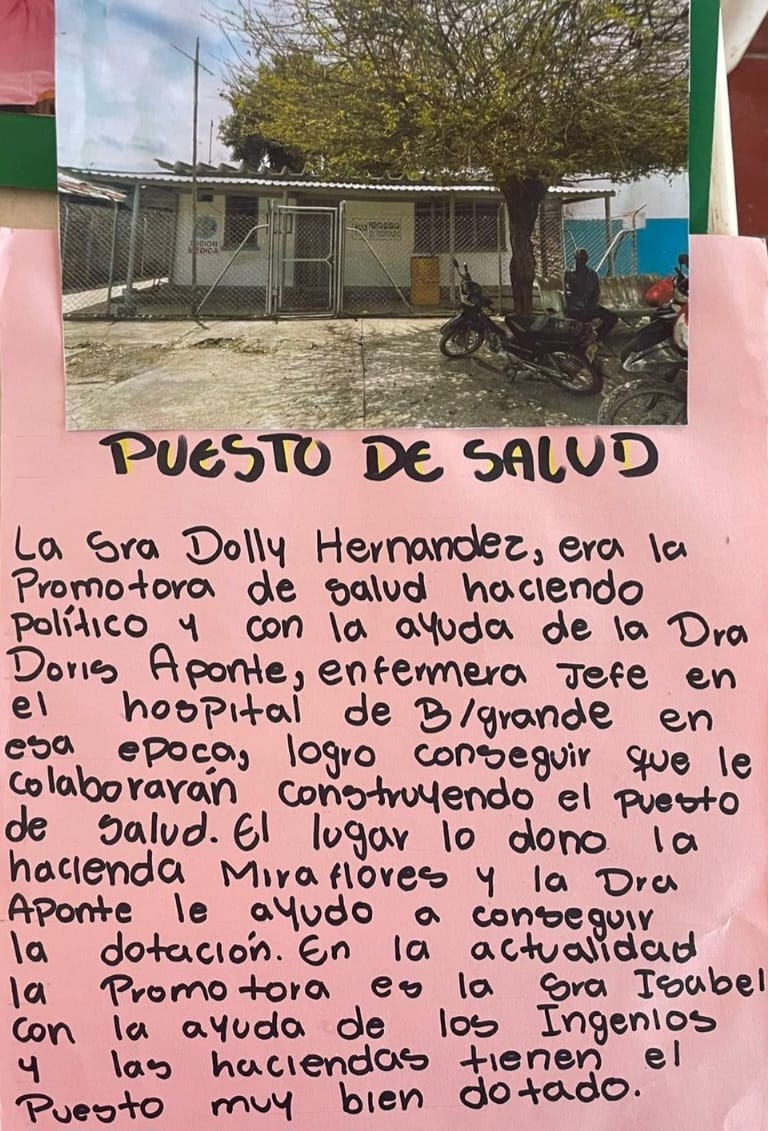 MISION
MEDICA
PUESTO DE SALUD
La Sra Dolly Hernandez, era la
Promotora de salud haciendo
político y con la ayuda de la Dra
Doris Aponte, enfermera Jefe en
el hospital de B/grande en
esa epoca, logro conseguir que le
colaborarán construyendo el puesto
de salud. El lugar lo dono la
hacienda Miraflores y la Dra
Aponte le ayudo a conseguir
la dotación. En la actualidad
la Promotora es la Sra Isabel
con la ayuda de los Ingenios
y las haciendas tienen el
Puesto muy bien dotado.